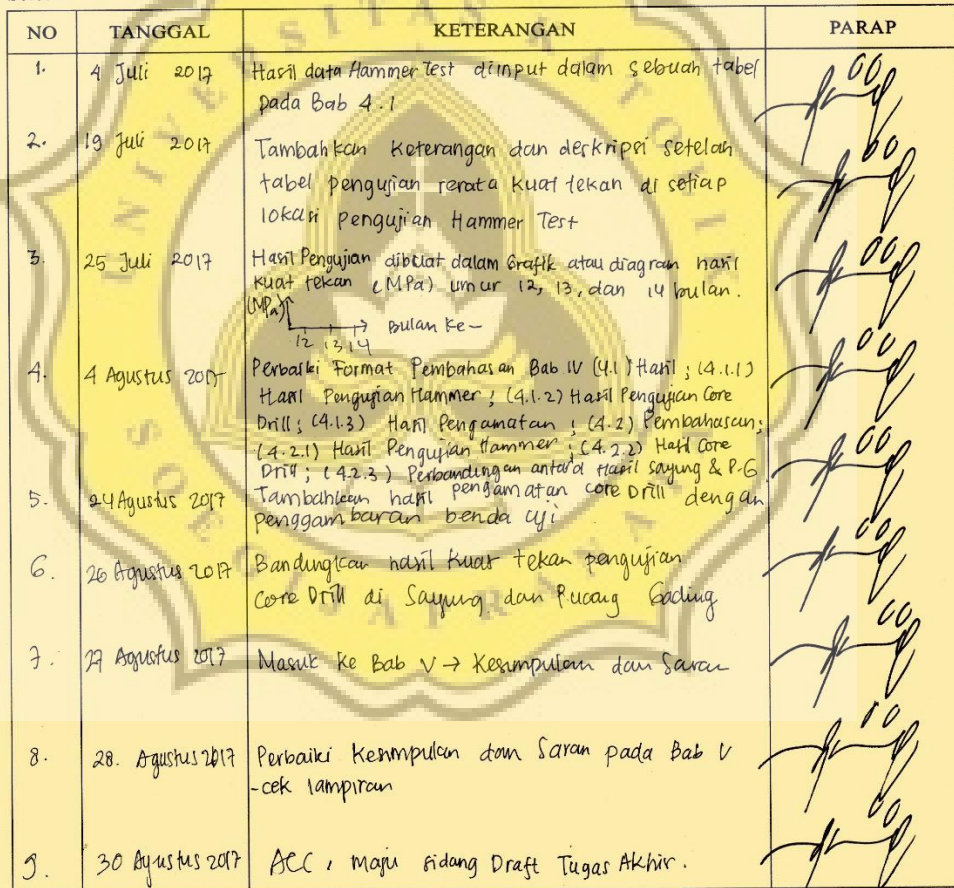 NO TANGGAL KETERANGAN PARAP
1. 4 Juli 2017 Hasil data Hammer Test diinput dalam sebuah tabel
pada Bab 4.1
2. 19 Juli 2017 Tambahkan Keterangan dan deskripsi setelah
tabel pengujian rerata kuat tekan di setiap
lokasi pengujian Hammer Test
3. 25 Juli 2017 Hasil Pengujian dibuat dalam Grafik atau diagram hasil
kuat tekan (MPa) umur 12, 13, dan 14 bulan.
(MPa)
Bulan Ke-
12 13 14
4. 4 Agustus 2017 Perbaiki Format Pembahasan Bab IV (4.1) Hasil ; (4.1.1)
Hasil Pengujian Hammer ; (4.1.2) Hasil Pengujian Core
Drill ; (4.1.3) Hasil Pengamatan ; (4.2) Pembahasan ;
(4.2.1) Hasil Pengujian Hammer ; (4.2.2) Hasil Core
Drill ; (4.2.3) Perbandingan antara Hasil Sayung & P.G
5. 24 Agustus 2017 Tambahkan hasil pengamatan core Drill dengan
penggambaran benda uji
6. 26 Agustus 2017 Bandingkan hasil kuat tekan pengujian
Core Drill di Sayung dan Pucang Gading
7. 27 Agustus 2017 Masuk ke Bab V → Kesimpulan dan Saran
8. 28. Agustus 2017 Perbaiki Kesimpulan dan Saran pada Bab V
-cek lampiran
9. 30 Agustus 2017 ACC, maju sidang Draft Tugas Akhir.
UNIVERSITAS KATOLIK
SOEGIJAPRANATA